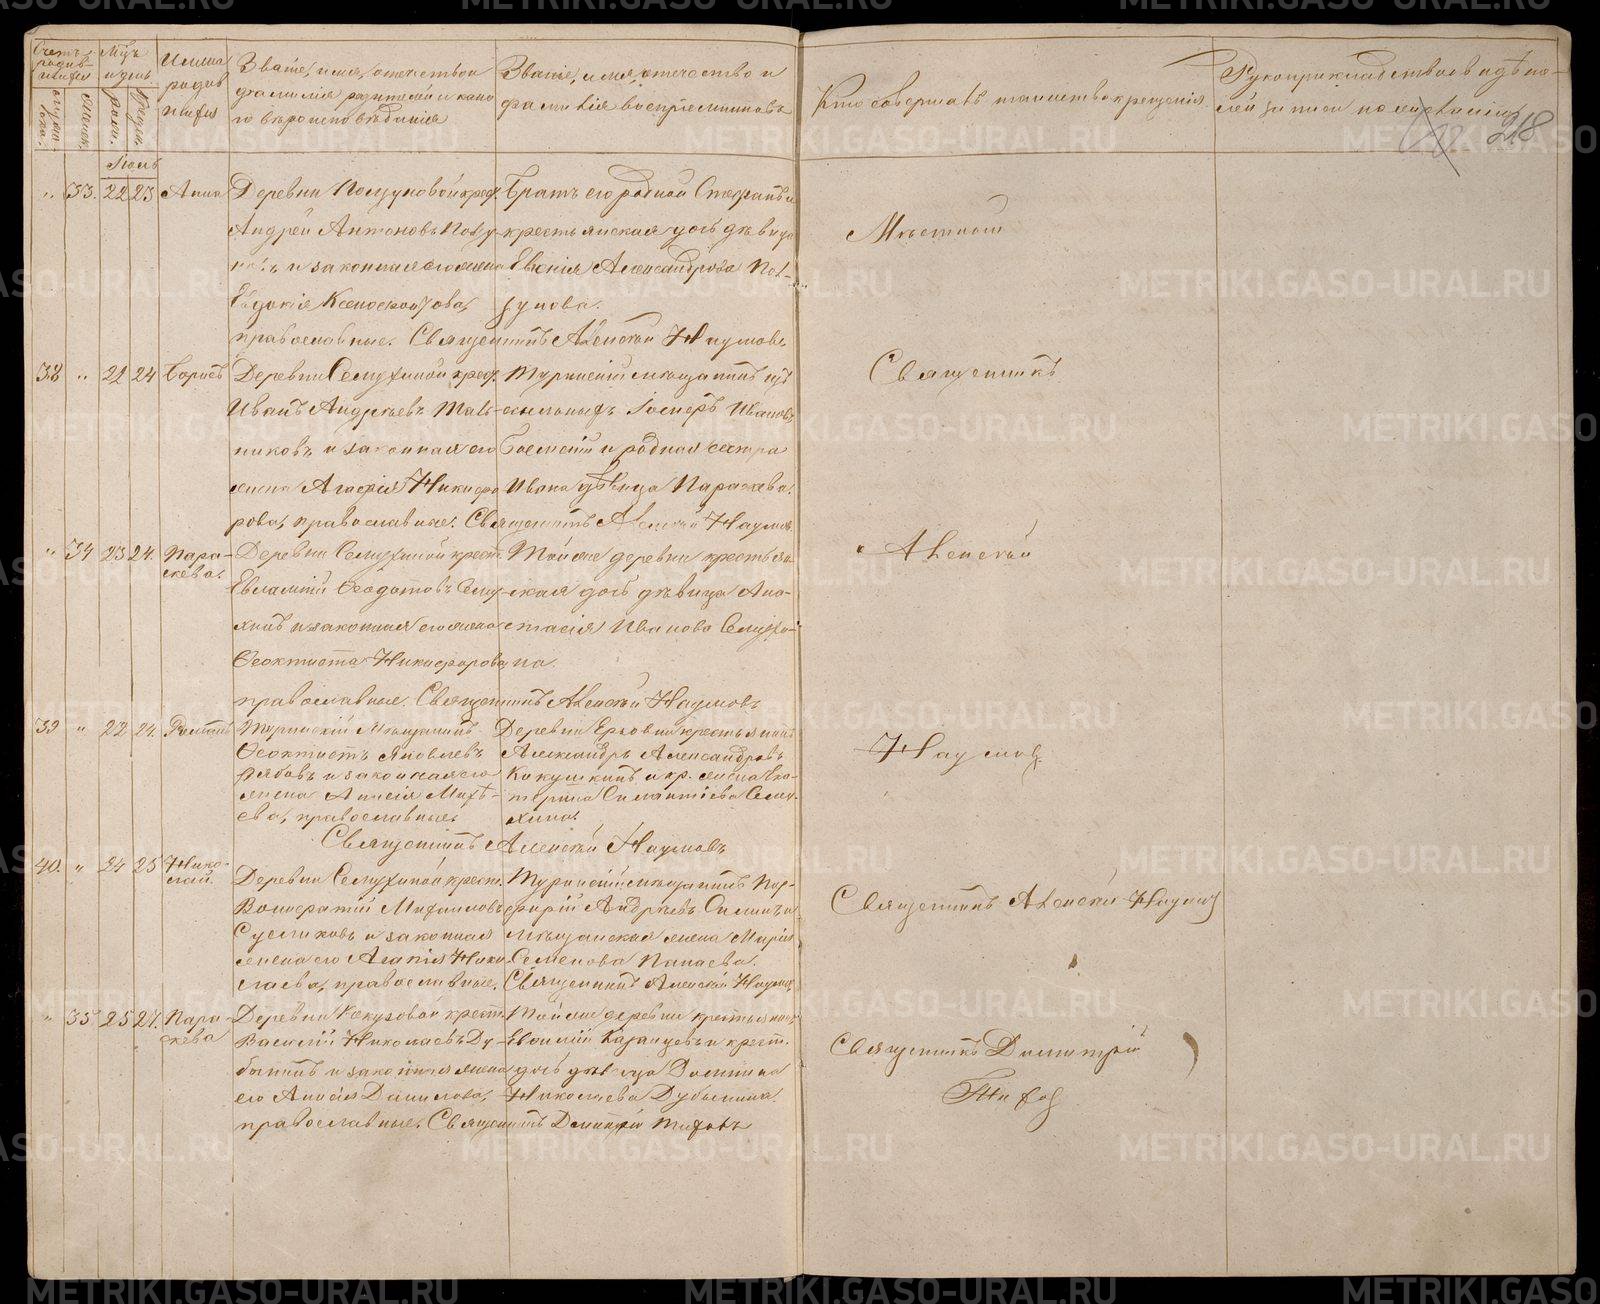 Счетъ родив-шихся
мужескаго пола.
женск.
Мѣсяцъ и день
рожд.
крещен.
Имена родив шихся
Званіе, имя, отчество и
фамилія родителей и како
го вѣроисповѣданія
Званіе, имя, отчество и
фамилія воспріемниковъ
Кто совершалъ таинство крещенія
Рукоприкладство свидѣте-
лей записи по желанію
218
Іюль
" 33. 22 23 Анна
Деревни Ползуновой крест.
Андрей Антоновъ Ползу-
новъ и законная его жена
Евдокія Ксенофонтова,
православные. Священникъ Алексѣй Наумовъ
Братъ его родной Стефанъ и
крестьянская дочь дѣвица
Евгенія Александрова Пол-
зунова.
Мѣстный
38 " 22 24 Борисъ
Деревни Семухиной крест.
Иванъ Андреевъ
никовъ и законная его
жена Агафія Никифо
рова, православные. Священникъ Алексѣй Наумовъ
Туринскій мѣщанинъ изъ
ссыльныхъ Іосифъ Ивановъ
и родная сестра
Ивана дѣвица Параскева.
Священникъ
" 34 23 24. Пара-
скева.
Деревни Семухиной крест.
Евлампій Ѳеодотовъ Сему-
хинъ и законная его жена
Ѳеоктиста Никифорова
православные. Священникъ Алексѣй Наумовъ
Той же деревни крестьян
ская дочь дѣвица Ана-
стасія Иванова Семухи-
на.
Алексѣй
39 " 22 24.
Туринскій мѣщанинъ
Ѳеоктистъ Яковлевъ
Рябовъ и законная его
жена Анисія Матѳѣ-
ева, православные.
Священникъ Алексѣй Наумовъ
Деревни Ерзовки крестьянинъ
Александръ Александровъ
Кокушкинъ и кр. жена Ека-
терина Силантіева Сему-
хина.
Наумовъ
40. " 24 25 Нико-
лай.
Деревни Семухиной крест.
Вонифатій Михаиловъ
Сусликовъ и законная
жена его Агапія Нико
лаева, православные. Священникъ Алексѣй Наумовъ
Туринскій мѣщанинъ Пор-
фирій Андреевъ и
мѣщанская жена Марія
Семенова Папаева.
Священникъ Алексѣй Наумовъ
" 35 25 27. Пара-
скева
Деревни Кекуровой крест.
Василій Николаевъ Ду-
бынинъ и законная жена
его Анисія Данилова,
православные. Священникъ Димитрій Тиховъ
Той же деревни крестьянинъ
и крест.
дочь дѣвица Домника
Николаева Дубынина.
Священникъ Димитрій
Тиховъ
METRIKI.GASO-URAL.RU